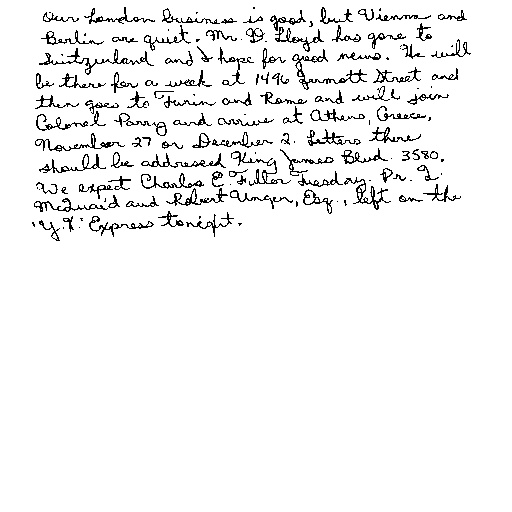 Our London business is good, but Vienna and
Berlin are quiet. Mr. D. Lloyd has gone to
Switzerland and I hope for good news. He will
be there for a week at 1496 Zermott Street and
then goes to Turin and Rome and will join
Colonel Parry and arrive at Athens, Greece,
November 27 or December 2. Letters there
should be addressed King James Blvd. 3580.
We expect Charles E. Fuller Tuesday. Dr. L.
McQuaid and Robert Unger, Esq., left on the
'Y.X.' Express tonight.